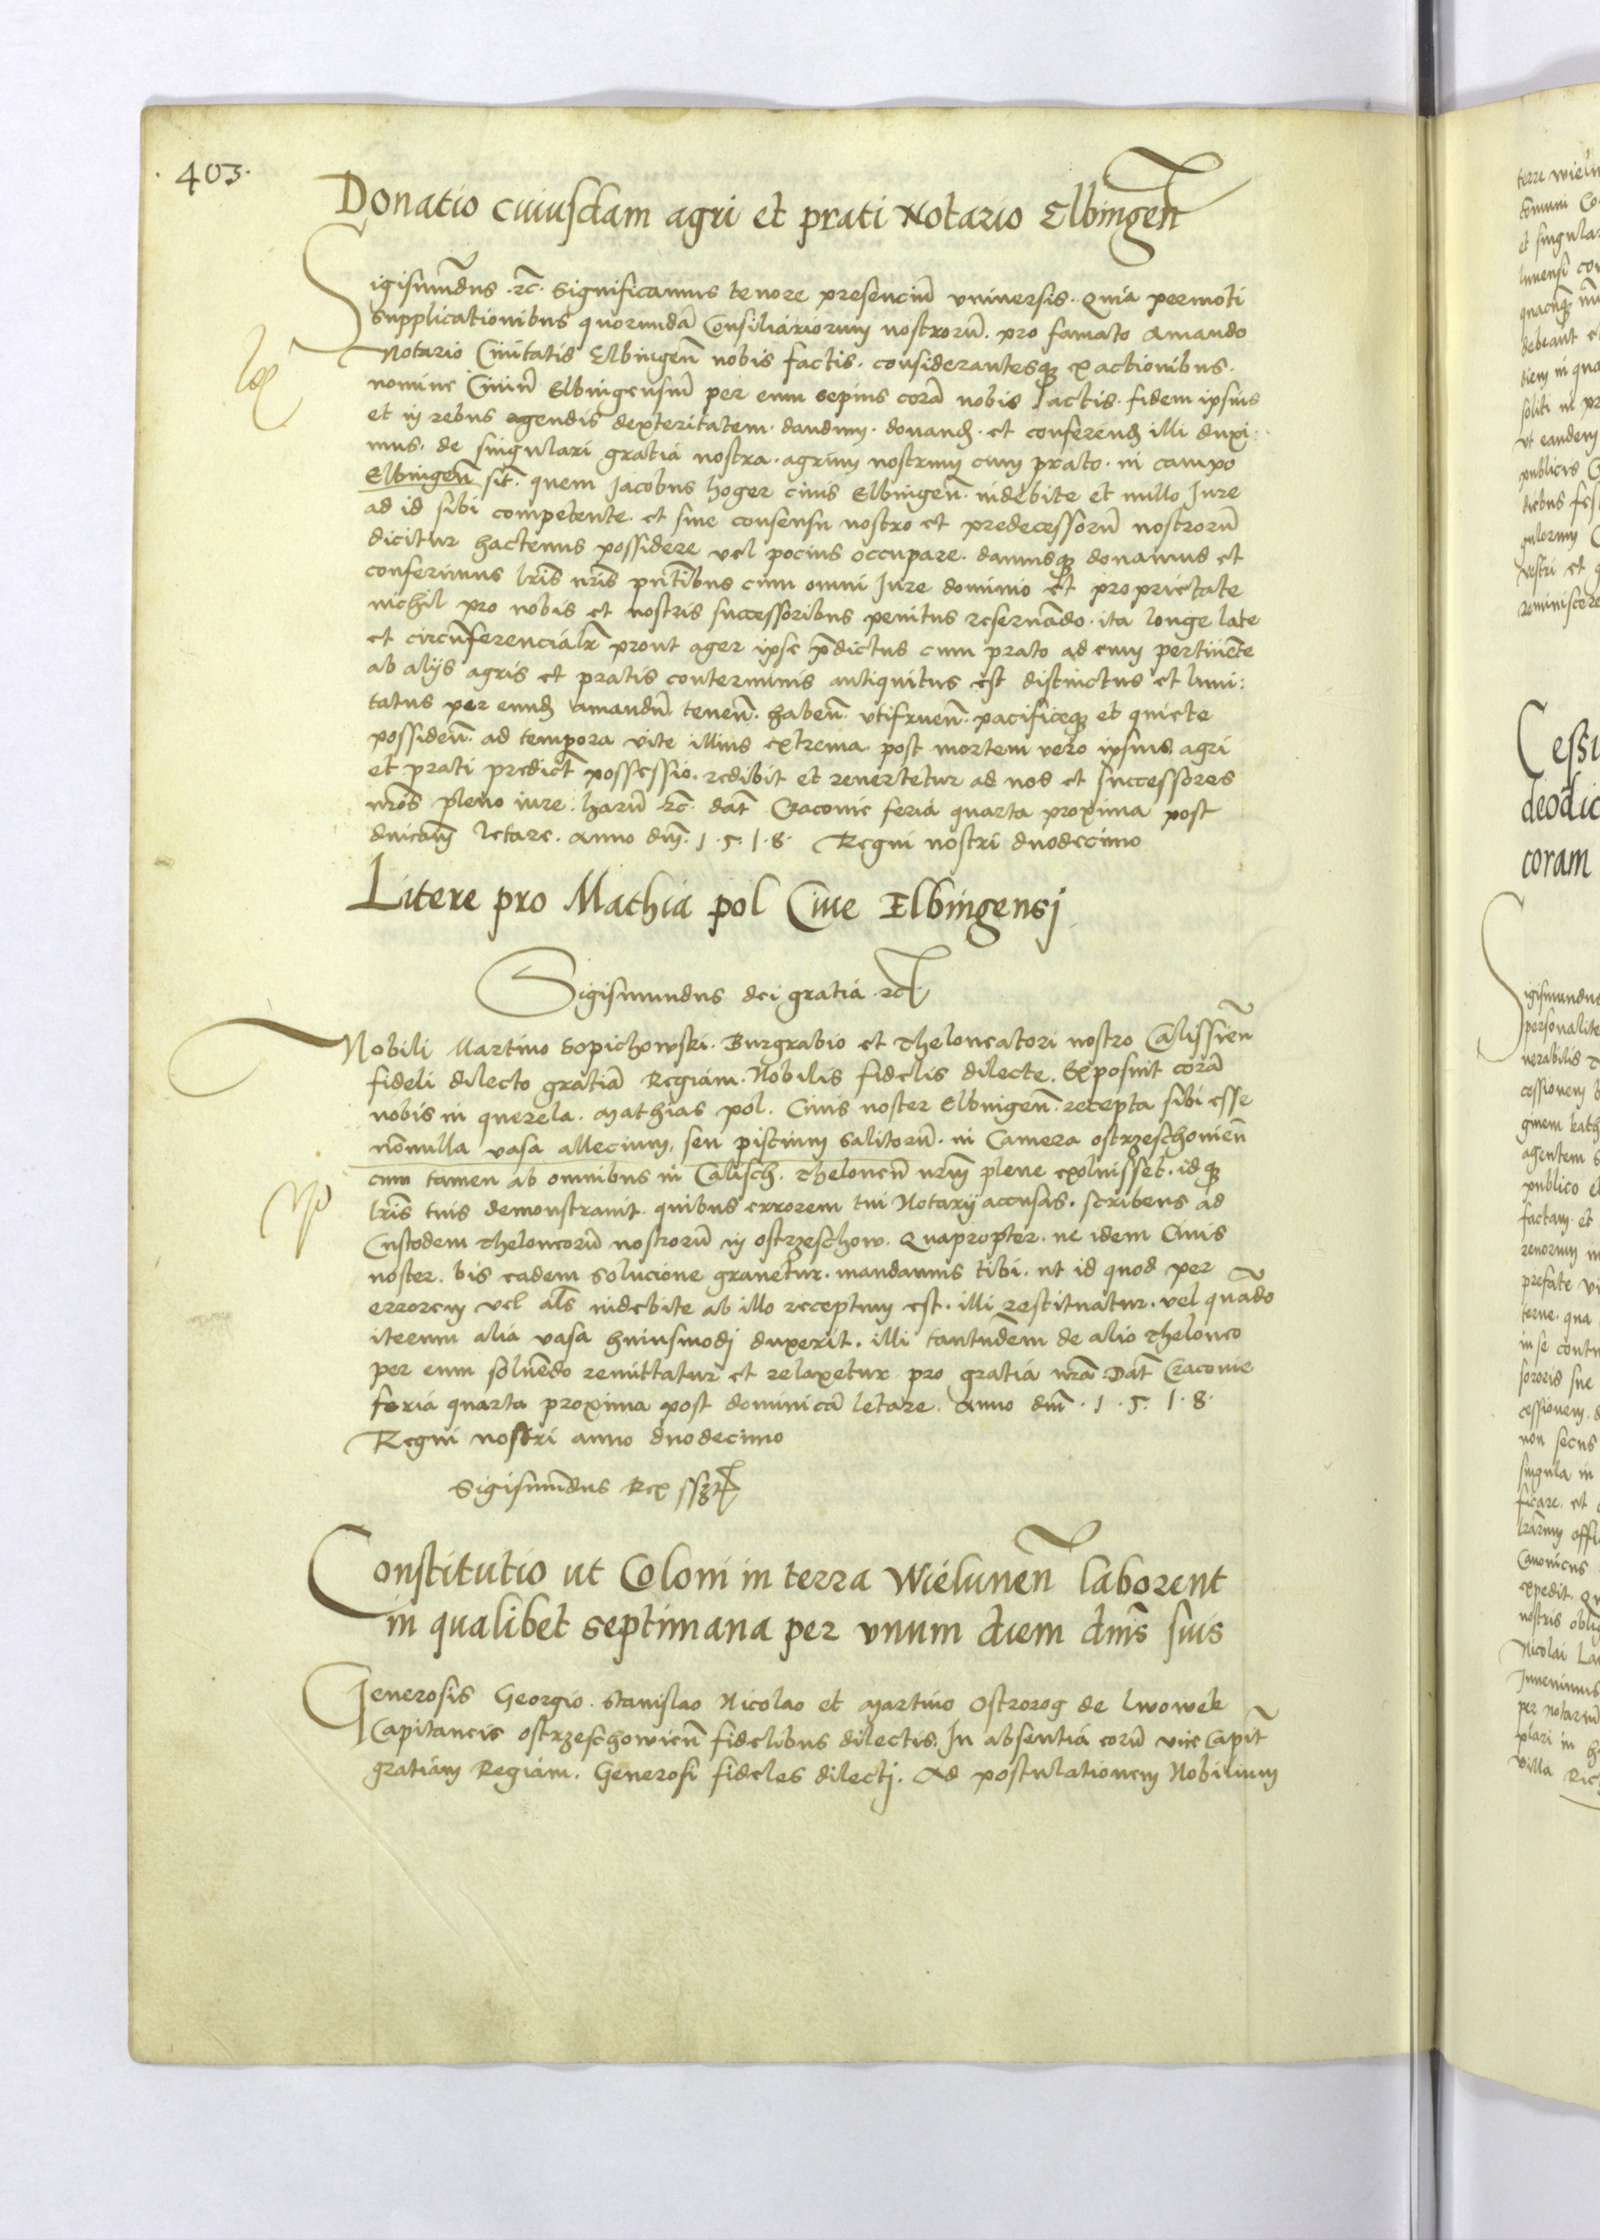 403.
Donatio cuiusdam agri et prati Notario Elbingeñ
Sigismūdus .rc̄. Significamus tenore presenciū vniuersis. Quia permoti
supplicationibus quorundā Consiliariorum nostrorū. pro famato Amando
Notario Ciuitatis Elbingeñ nobis factis. considerantesqꝫ ex actionibus.
nomine Ciuiū Elbingensiū per eum sepius corā nobis factis. fidem ipsius
et in rebus agendis dexteritatem. dandum. donand. et conferend illi duxi:
mus. de singulari gratia nostra. agrum nostrum cum prato. in campo
Elbingeñ sit̄. quem Jacobus hoger ciuis Elbingeñ. indebite et nullo Jure
ad id sibi competente. et sine consensu nostro et predecessorū nostrorū
dicitur hactenus possidere vel pocius occupare. damusqꝫ donamus et
conferimus lr̄is nr̄is pn̄tibus cum omni Jure dominio et proprietate
nichil pro nobis et nostris successoribus penitus reseruādo. ita longe late
et circūferencialr̄ prout ager ipse p̄dictus cum prato ad eum pertinēte
ab alijs agris et pratis conterminis antiquitus est distinctus et limi:
tatus per eund amandū teneñ. habeñ. vtifrueñ. pacificeqꝫ et quiete
possideñ. ad tempora vite illius extrema. post mortem vero ipsius agri
et prati predict̄ possessio. redibit et reuertetur ad nos et successores
nr̄os pleno iure. harū rc̄. dat̄ Cracouie feria quarta proxima post
dn̄icam̄ letare. Anno dn̄i. 1.5.1.8. Regni nostri duodecimo
Litere pro Mathia pol Ciue Elbingensj
Sigismundus dei gratia .rc̄.
Nobili Martino Sopichowski. Burgrabio et Theloneatori nostro Calissieñ
fideli dilecto gratiā Regiam. Nobilis fidelis dilecte. Exposuit corā
nobis in querela. Mathias pol. Ciuis noster Elbingeñ. recepta sibi esse
nōnulla vasa allecium, seu piscium salitorū. in Camera ostrzeschouieñ
cum tamen ab omnibus in Calisch. Theloneū nr̄um plene exoluisset. idqꝫ
lr̄is tuis demonstrauit. quibus errorem tui Notarij accusas. scribens ad
Custodem theloneorū nostrorū in ostrzeschow. Quapropter. ne idem Ciuis
noster. bis eadem solucione grauetur. mandamus tibi. ut id quod per
errorem vel al̄s indebite ab illo receptum est. illi restituatur. vel quādo
iterum alia vasa huiusmodj duxerit. illi tantundem de alio theloneo
per eum soluēdo remittatur et relaxetur pro gratia nr̄a Dat̄ Cracouie
feria quarta proxima post dominicā letare. Anno dn̄i .1.5.1.8.
Regni nostri anno duodecimo
Sigismūdus Rex sszt
Constitutio ut Coloni in terra Wieluneñ laborent
in qualibet septimana per vnum diem dn̄is suis
Generosis Georgio. Stanislao Nicolao et Martino Ostrorog de lwowek
Capitaneis ostrzeschowieñ fidelibus dilectis. In absentia eorū vice Capit̄
gratiam Regiam. Generosi fideles dilectj. Ad postulationem Nobilium
Cessi
deodic
coram